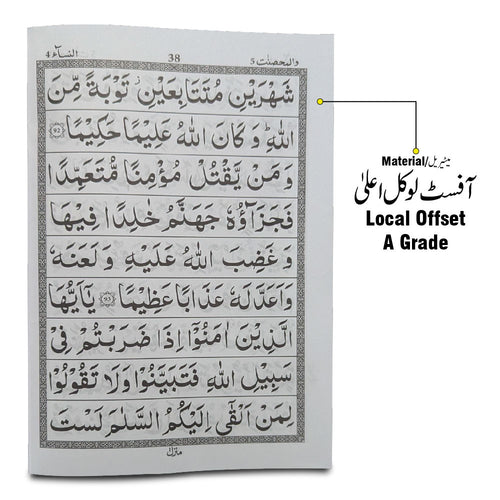 النساۤء ٤
38
والمحصنٰت ٥
شَهْرَيْنِ مُتَتَابِعَيْنِ٘ تَوْبَةً مِّنَ
اللّٰهِ١ؕ وَ كَانَ اللّٰهُ عَلِيْمًا حَكِيْمًا ۝92
وَ مَنْ يَّقْتُلْ مُؤْمِنًا مُّتَعَمِّدًا
فَجَزَآؤُهٗ جَهَنَّمُ خٰلِدًا فِيْهَا
وَ غَضِبَ اللّٰهُ عَلَيْهِ وَ لَعَنَهٗ
وَ اَعَدَّ لَهٗ عَذَابًا عَظِيْمًا ۝93 يٰۤاَيُّهَا
الَّذِيْنَ اٰمَنُوْۤا اِذَا ضَرَبْتُمْ فِيْ
سَبِيْلِ اللّٰهِ فَتَبَيَّنُوْا وَ لَا تَقُوْلُوْا
لِمَنْ اَلْقٰۤى اِلَيْكُمُ السَّلٰمَ لَسْتَ
منزل
Material/میٹریل
آفسٹ لوکل اعلیٰ
Local Offset
A Grade